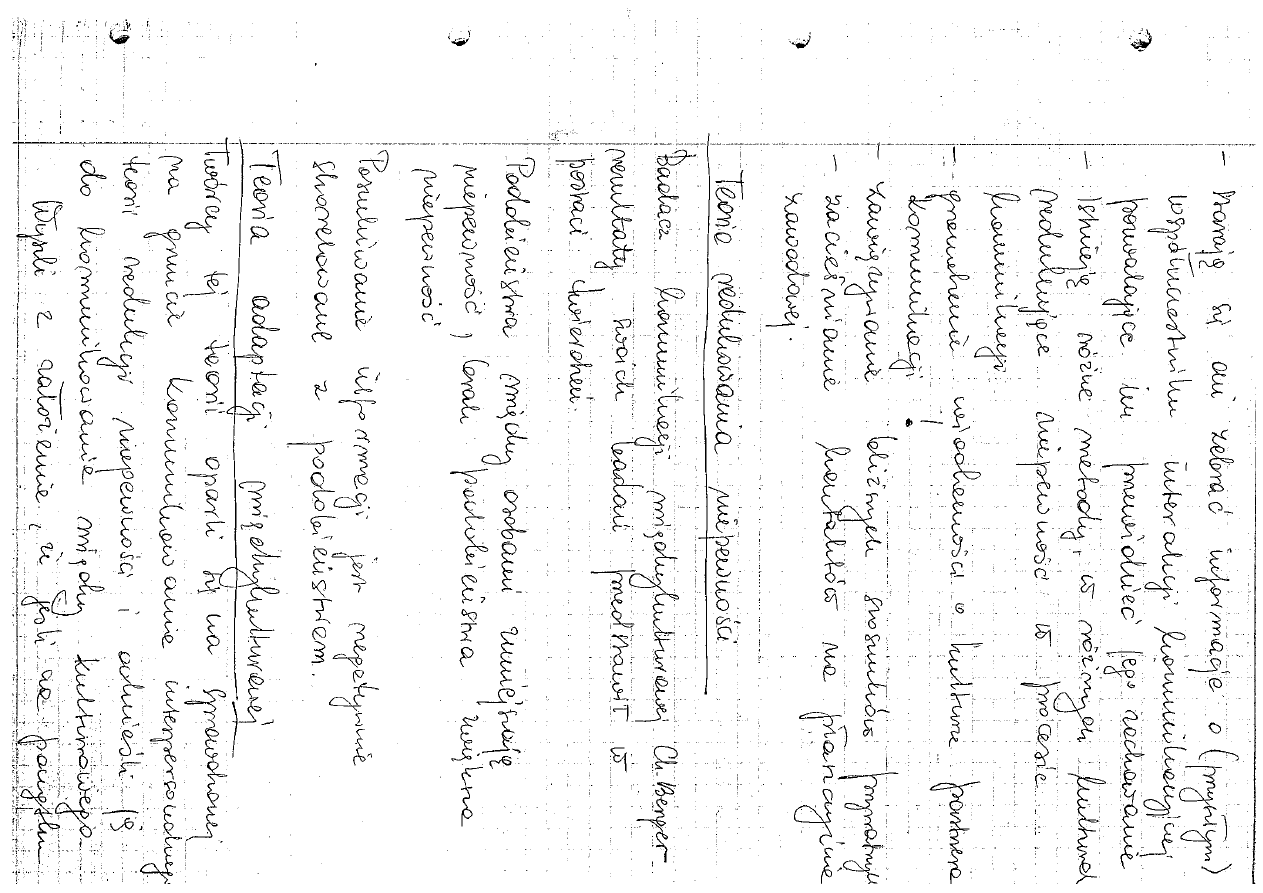 - Starają się oni zebrać informacje o (przyszłym)
współuczestniku interakcji komunikacyjnej
pozwalające im przewidzieć jego zachowanie
- Istnieją różne metody, w różnych kulturach
redukujące niepewność w procesie
komunikacji
- gromadzenie wiadomości o kulturze partnera
komunikacji
- zawiązywanie bliższych stosunków prywatnych
- zacieśnianie kontaktów na płaszczyźnie
zawodowej.
Teoria redukowania niepewności.
Badacz komunikacji międzykulturowej Ch. Berger
rezultaty swoich badań przedstawił w
postaci twierdzeń.
Podobieństwa między osobami zmniejszają
niepewność, brak podobieństwa zwiększa
niepewność
Poszukiwanie informacji jest negatywnie
skorelowane z podobieństwem.
Teoria adaptacji międzykulturowej
Twórcy tej teorii oparli się na sprawdzonej
na gruncie komunikowania interpersonalnego
teorii redukcji niepewności i odnieśli ją
do komunikowania między kulturowego
Wyszli z założenia, iż jeśli na początku